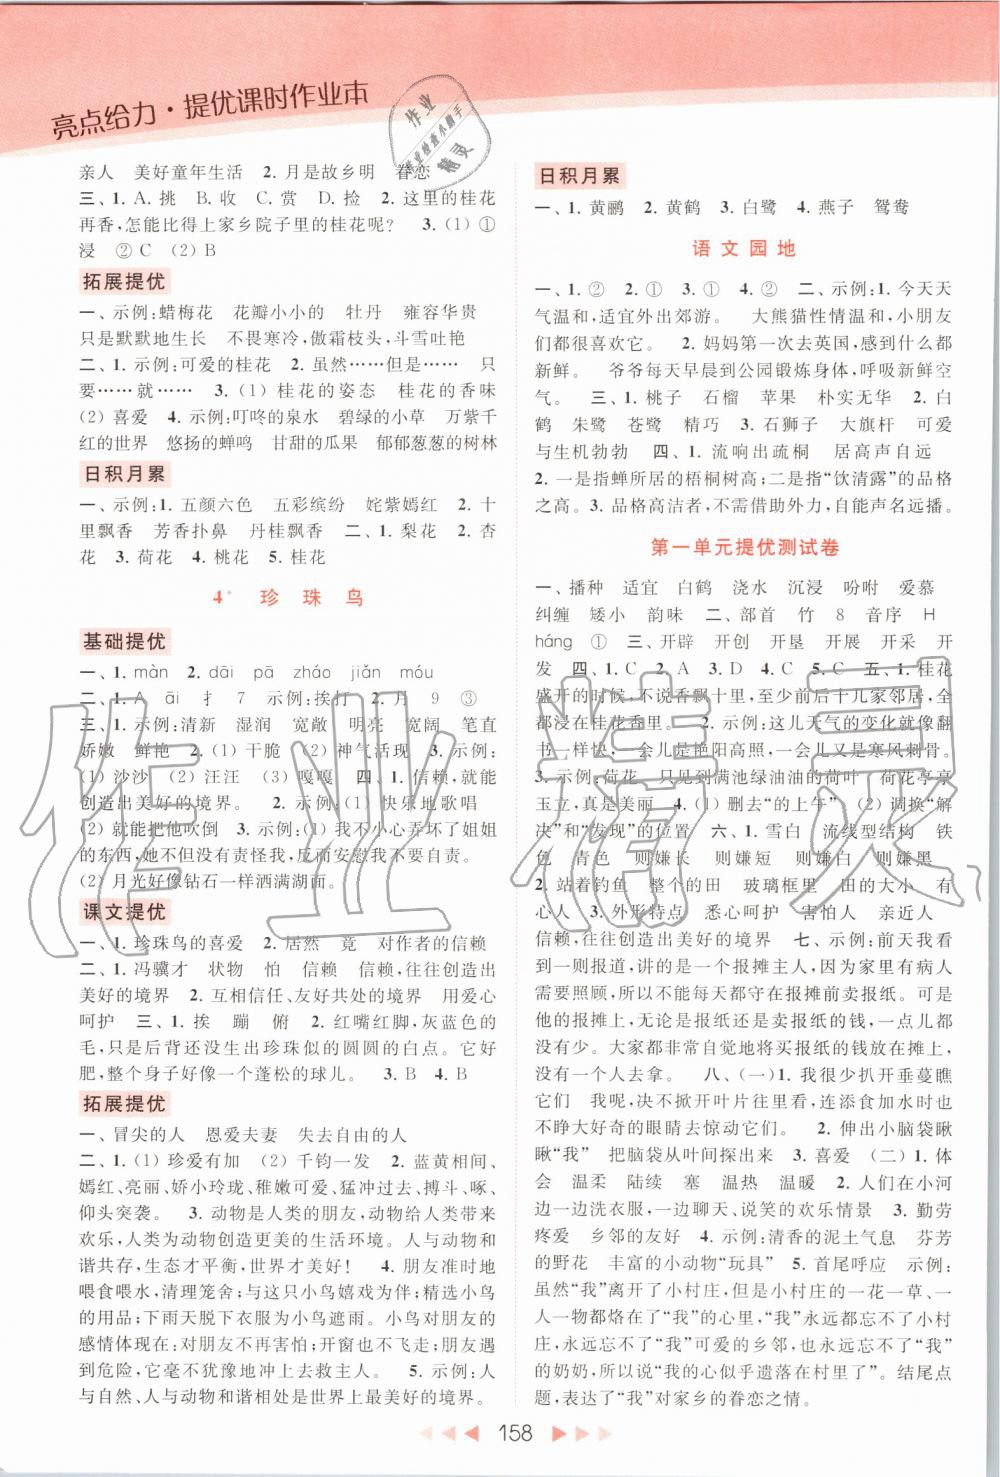 亮点给力·提优课时作业本
亲人 美好童年生活 2.月是故乡明 眷恋
三、1.A.挑 B.收 C.赏 D.捡 2.这里的桂花
再香,怎能比得上家乡院子里的桂花呢? 3.(1)①
浸 ②C (2)B
拓展提优
一、示例:蜡梅花 花瓣小小的 牡丹 雍容华贵
只是默默地生长 不畏寒冷,傲霜枝头,斗雪吐艳
二、1.示例:可爱的桂花 2.虽然……但是…… 只
要……就…… 3.(1)桂花的姿态 桂花的香味
(2)喜爱 4.示例:叮咚的泉水 碧绿的小草 万紫千
红的世界 悠扬的蝉鸣 甘甜的瓜果 郁郁葱葱的树林
日积月累
一、示例:1.五颜六色 五彩缤纷 姹紫嫣红 2.十
里飘香 芳香扑鼻 丹桂飘香 二、1.梨花 2.杏
花 3.荷花 4.桃花 5.桂花
4* 珍珠鸟
基础提优
一、1.màn 2.dāi pā zháo jiǎn móu
二、1.A āi 扌 7 示例:挨打 2.月 9 ③
三、1.示例:清新 湿润 宽敞 明亮 宽阔 笔直
娇嫩 鲜艳 2.(1)干脆 (2)神气活现 3.示例:
(1)沙沙 (2)汪汪 (3)嘎嘎 四、1.信赖,就能
创造出美好的境界。 2.示例:(1)快乐地歌唱
(2)就能把他吹倒 3.示例:(1)我不小心弄坏了姐姐
的东西,她不但没有责怪我,反而安慰我不要自责。
(2)月光好像钻石一样洒满湖面。
课文提优
一、1.珍珠鸟的喜爱 2.居然 竟 对作者的信赖
二、1.冯骥才 状物 怕 信赖 信赖,往往创造出
美好的境界 2.互相信任、友好共处的境界 用爱心
呵护 三、1.挨 蹦 俯 2.红嘴红脚,灰蓝色的
毛,只是后背还没生出珍珠似的圆圆的白点。它好
肥,整个身子好像一个蓬松的球儿。 3.B 4.B
拓展提优
一、冒尖的人 恩爱夫妻 失去自由的人
二、1.(1)珍爱有加 (2)千钧一发 2.蓝黄相间、
嫣红、亮丽、娇小玲珑、稚嫩可爱、猛冲过去、搏斗、啄、
仰头突袭。 3.动物是人类的朋友,动物给人类带来
欢乐,人类为动物创造更多的生活环境。人与动物和
谐共存,生态才平衡,世界才美好! 4.朋友准时地
喂食喂水,清理笼舍;与这只小鸟嬉戏为伴;精选小鸟
的用品;下雨天脱下衣服为小鸟遮雨。小鸟对朋友的
感情体现在:对朋友不再害怕;开窗也不飞走;朋友遇
到危险,它毫不犹豫地冲上去救主人。 5.示例:人
与自然、人与动物和谐相处是世界上最美好的境界。
日积月累
一、1.黄鹂 2.黄鹤 3.白鹭 4.燕子 鸳鸯
语文园地
一、1.② 2.① 3.① 4.② 二、示例:1.今天天
气温和,适宜外出郊游。 大熊猫性情温和,小朋友
们都很喜欢它。 2.妈妈第一次去英国,感到什么都
新鲜。 爷爷每天早晨到公园锻炼身体,呼吸新鲜空
气。 三、1.桃子 石榴 苹果 朴实无华 2.白
鹤 朱鹭 苍鹭 精巧 3.石狮子 大旗杆 可爱
与生机勃勃 四、1.流响出疏桐 居高声自远
2.一是指蝉所居的梧桐树高;二是指“饮清露”的品格
之高。 3.品格高洁者,不需要借助外力,自能声名远播。
第一单元提优测试卷
一、播种 适宜 白鹤 浇水 沉浸 吩咐 爱慕
纠缠 矮小 韵味 二、部首 竹 8 音序 H
háng ① 三、开辟 开创 开垦 开展 开采 开
发 四、1.C 2.A 3.D 4.C 5.C 五、1.桂花
盛开的时候,不说香飘十里,至少前后十几家邻居,全
都浸在桂花香里。 2.示例:这儿天气的变化就像翻
书一样快,一会儿是艳阳高照,一会儿又是寒风刺骨。
3.示例:荷花 只见到满池绿油油的荷叶 荷花亭亭
玉立,真是美丽 4.(1)删去“的上午” (2)调换“解
决”和“发现”的位置 六、1.雪白 流线型结构 铁
色 青色 则嫌长 则嫌短 则嫌白 则嫌黑
2.站着钓鱼 整个的田 玻璃框里 田的大小 有
心人 3.外形特点 悉心呵护 害怕人 亲近人
信赖,往往创造出美好的境界 七、示例:前天我看
到一则报道,讲的是一个报摊主人,因家里有病人
需要照顾,所以不能每天都守在报摊前卖报纸。可是
他的报摊上,无论是报纸还是卖报纸的钱,一点儿都
没少。大家都非常自觉地将买报纸的钱放在摊上,
没有一个人去拿。 八、(一)1.我悄悄扒开垂蔓瞧
它们 我呢,决不掀开叶片往里看,连添食加水时也
不睁大好奇的眼去惊动它们。 2.伸出小脑袋瞅
瞅“我” 把脑袋从叶间探出来 3.喜爱 (二)1.体
会 温柔 陆续 塞 温热 温暖 2.人们在小河
边一边洗衣服,一边聊天、说笑的欢乐情景 3.勤劳
疼爱 乡邻的友爱 4.示例:清香的泥土气息 芬芳
的野花 丰富的小动物“玩具” 5.首尾呼应 示例:
虽然“我”离开了小村庄,但小村庄的一花一草、一
人一物都烙在了“我”的心里,“我”永远都忘不了小村
庄,永远忘不了“我”可爱的乡邻,也永远忘不了“我”
的奶奶,所以说“我的心似乎遗落在村里了”。结尾点
题,表达了“我”对家乡的眷恋之情。
158
作业精灵